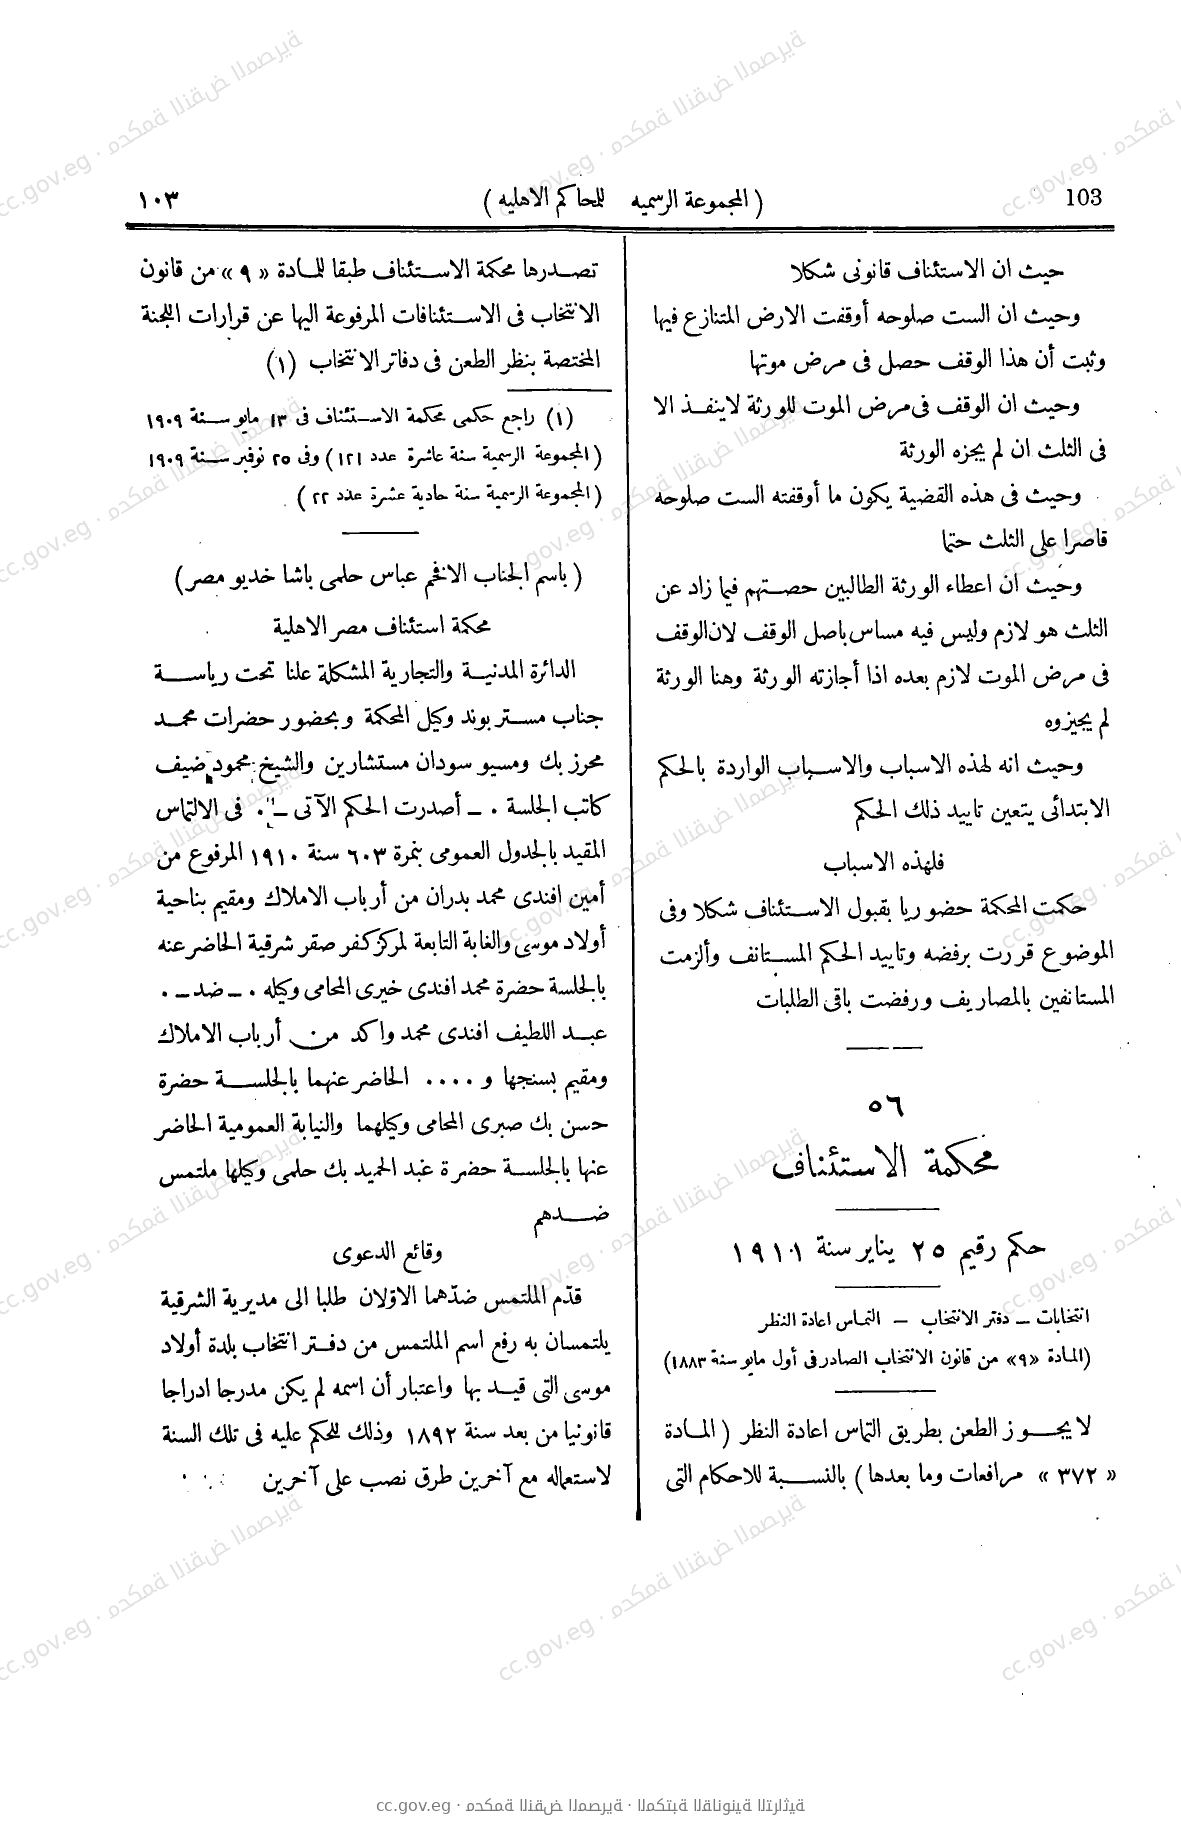 103
( المجموعة الرسميه للمحاكم الاهليه )
١٠٣
حيث ان الاستئناف قانونى شكلا
وحيث ان الست صلوحه أوقفت الارض المتنازع فيها
وثبت أن هذا الوقف حصل فى مرض موتها
وحيث ان الوقف فى مرض الموت للورثة لاينفذ الا
فى الثلث ان لم يجزه الورثة
وحيث فى هذه القضية يكون ما أوقفته الست صلوحه
قاصرا على الثلث حتما
وحيث ان اعطاء الورثة الطالبين حصتهم فيما زاد عن
الثلث هو لازم وليس فيه مساس باصل الوقف لان الوقف
فى مرض الموت لازم بعده اذا أجازته الورثة وهنا الورثة
لم يجيزوه
وحيث انه لهذه الاسباب والاسباب الواردة بالحكم
الابتدائى يتعين تاييد ذلك الحكم
فلهذه الاسباب
حكمت المحكمة حضوريا بقبول الاستئناف شكلا وفى
الموضوع قررت برفضه وتاييد الحكم المستانف وألزمت
المستانفين بالمصاريف ورفضت باقى الطلبات
٥٦
محكمة الاستئناف
حكم رقيم ٢٥ يناير سنة ١٩١١
انتخابات – دفتر الانتخاب – التماس اعادة النظر
(المادة «٩» من قانون الانتخاب الصادر فى أول مايو سنة ١٨٨٣)
لا يجوز الطعن بطريق التماس اعادة النظر ( المادة
« ٣٧٢ » مرافعات وما بعدها ) بالنسبة للاحكام التى
تصدرها محكمة الاستئناف طبقا للمادة « ٩ » من قانون
الانتخاب فى الاستئنافات المرفوعة اليها عن قرارات اللجنة
المختصة بنظر الطعن فى دفاتر الانتخاب (١)
(١) راجع حكمى محكمة الاستئناف فى ١٣ مايو سنة ١٩٠٩
( المجموعة الرسمية سنة عاشرة عدد ١٢١ ) وفى ٢٥ نوفمبر سنة ١٩٠٩
( المجموعة الرسمية سنة حادية عشرة عدد ٢٢ )
( باسم الجناب الافخم عباس حلمى باشا خديو مصر )
محكمة استئناف مصر الاهلية
الدائرة المدنية والتجارية المشكلة علنا تحت رياسة
جناب مستر بوند وكيل المحكمة وبحضور حضرات محمد
محرز بك ومسيو سودان مستشارين والشيخ محمود ضيف
كاتب الجلسة . – أصدرت الحكم الآتى – . فى الالتماس
المقيد بالجدول العمومى بنمرة ٦٠٣ سنة ١٩١٠ المرفوع من
أمين افندى محمد بدران من أرباب الاملاك ومقيم بناحية
أولاد موسى والغابة التابعة لمركز كفر صقر شرقية الحاضر عنه
بالجلسة حضرة محمد افندى خيرى المحامى وكيله . – ضد – .
عبد اللطيف افندى محمد واكد من أرباب الاملاك
ومقيم بسنجها و .... الحاضر عنهما بالجلسة حضرة
حسن بك صبرى المحامى وكيلهما والنيابة العمومية الحاضر
عنها بالجلسة حضرة عبد الحميد بك حلمى وكيلها ملتمس
ضدهم
وقائع الدعوى
قدّم الملتمس ضدّهما الاوّلان طلبا الى مديرية الشرقية
يلتمسان به رفع اسم الملتمس من دفتر انتخاب بلدة أولاد
موسى التى قيد بها واعتبار أن اسمه لم يكن مدرجا ادراجا
قانونيا من بعد سنة ١٨٩٢ وذلك للحكم عليه فى تلك السنة
لاستعماله مع آخرين طرق نصب على آخرين
cc.gov.eg · محكمة النقض المصرية · المكتبة القانونية التراثية